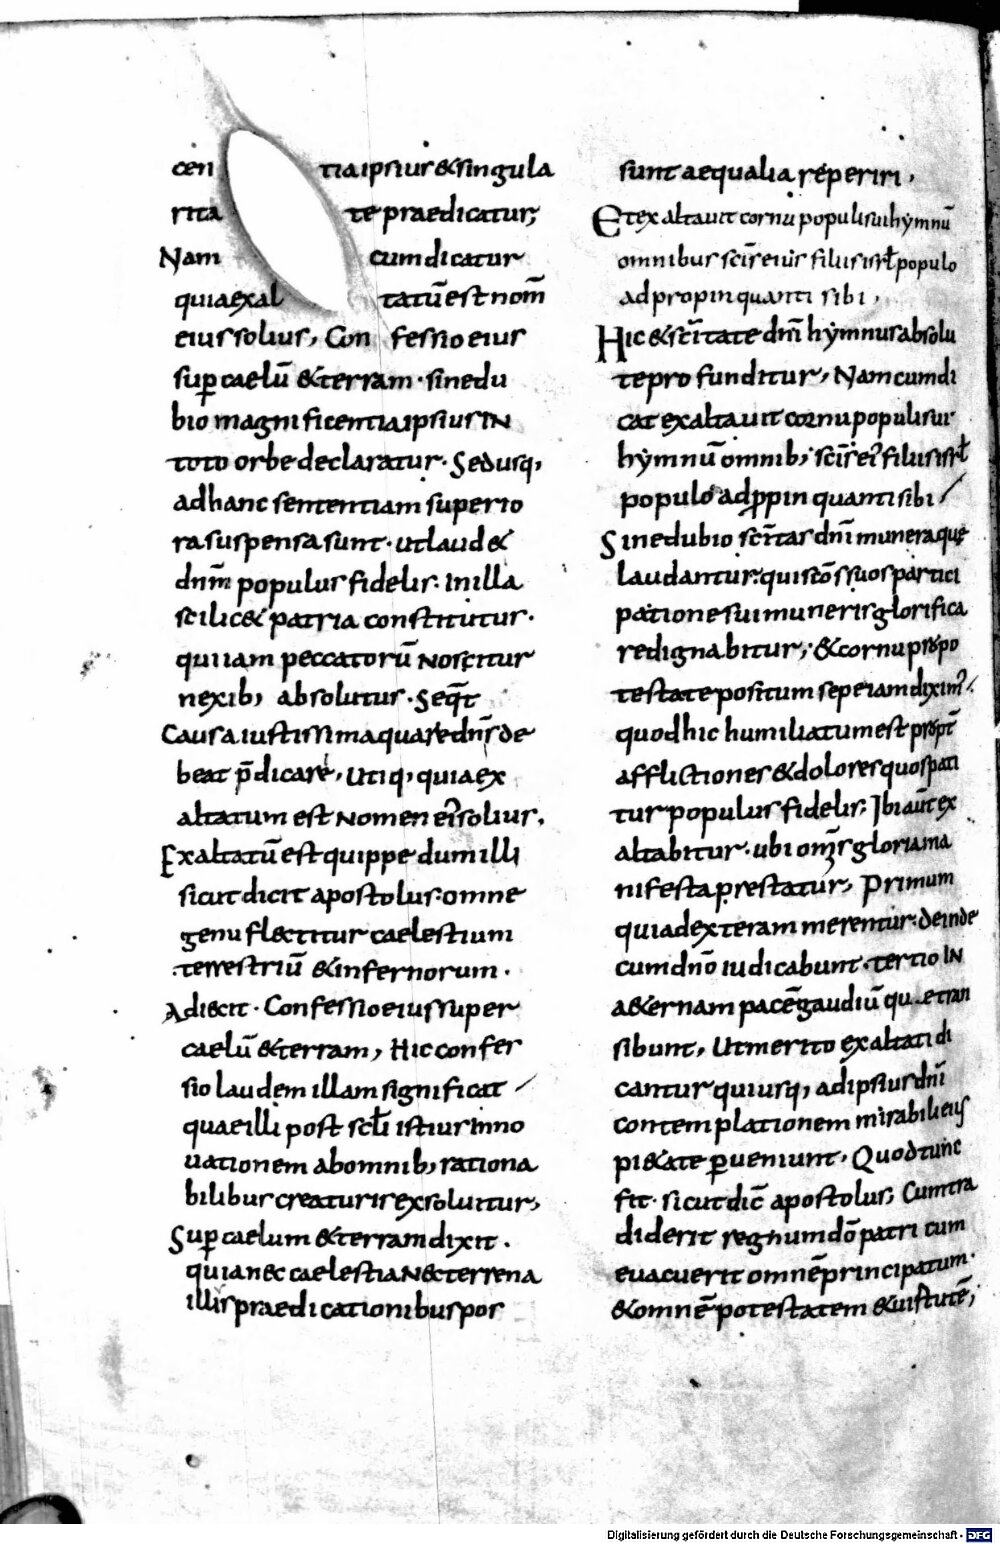 cen tia ipsius & singula
rita te praedicatur;
Nam cum dicatur
quia exal tatū est nom̄
eius solius, Con fessio eius
sup̱ caelū & terram · sine du
bio magnificentia ipsius IN
toto orbe declaratur · Sed usq;
ad hanc sententiam superio
ra suspensa sunt · ut laud&
dnm̄ populus fidelis · in illa
scilic& patria constitutus ·
qui iam peccatorū Noscitur
nexib; absolutus · Seq̄t
Causa iustissima quare dn̄s de
beat p̄dicare, Utiq; quia ex
altatum est Nomen ei' solius,
Exaltatū est quippe dum illi
sicut dicit apostolus · omne
genu flectitur caelestium
terrestriū & infernorum ·
Adiecit · Confessio eius super
caelū & terram, Hic confes
sio laudem illam significat
quae illi post scł̄i istius inno
uationem ab omnib; rationa
bilibus creaturis exsoluitur;
Sup̱ caelum & terram dixit ·
quia nec caelestia Nec terrena
illis praedicationibus pos
sunt aequalia reperiri,
Et exaltauit cornu populi sui hymnū
omnibus sc̄is eius filiis isrł populo
adpropinquanti sibi,
Hic & sc̄itate dn̄i hymnus absolu
te profunditur, Nam cum di
cat exaltauit cornu populi sui
hymnū omnib; sc̄is ei' filiis isrł
populo adp̱pinquanti sibi
Sine dubio sc̄itas dn̄i munera que
laudantur · qui sc̄os suos partici
patione sui muneris glorifica
re dignabitur; & cornu pro po
testate positum sepe iam dixim'
quod hic humiliatum est propt̄
afflictiones & dolores quos pati
tur populus fidelis; Ibi aut̄ ex
altabitur · ubi om̄s gloria ma
nifesta prestatur, Primum
quia dexteram merentur · deinde
cum dn̄o iudicabunt · tertio IN
a&ernam pacē gaudiū tran
sibunt, Ut merito exaltati di
cantur qui usq; ad ipsius dn̄i
contemplationem mirabili eius
pi&ate p̱ueniunt, Quod tunc
fit · sicut dic̄ apostolus; Cum tra
diderit regnum dō patri cum
euacuerit omnē principatum ·
& omnē potestatem & uirtutē;
Digitalisierung gefördert durch die Deutsche Forschungsgemeinschaft - DFG